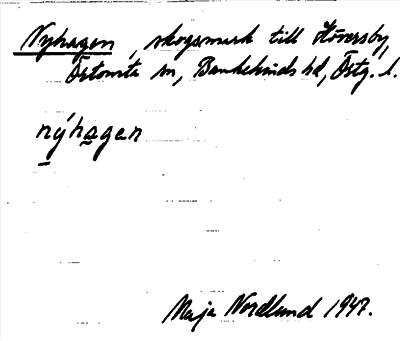 Nyhagen, skogsmark till Höversby,
Örtomta sn, Bankekinds hd, Östg. l.
nýhagen
Maja Nordlund 1947.